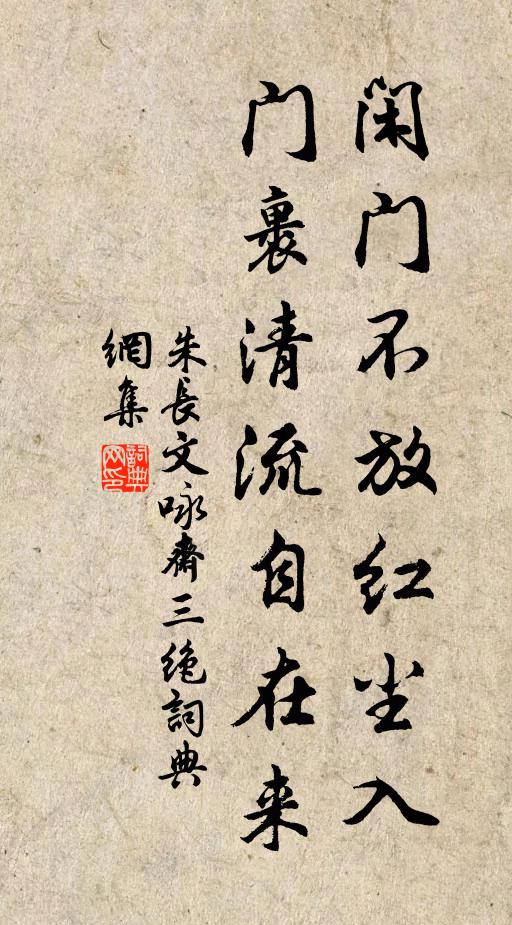 闲门不放红尘入
门裏清流自在来
朱長文咏齋三绝詞典
網集
詞典網印